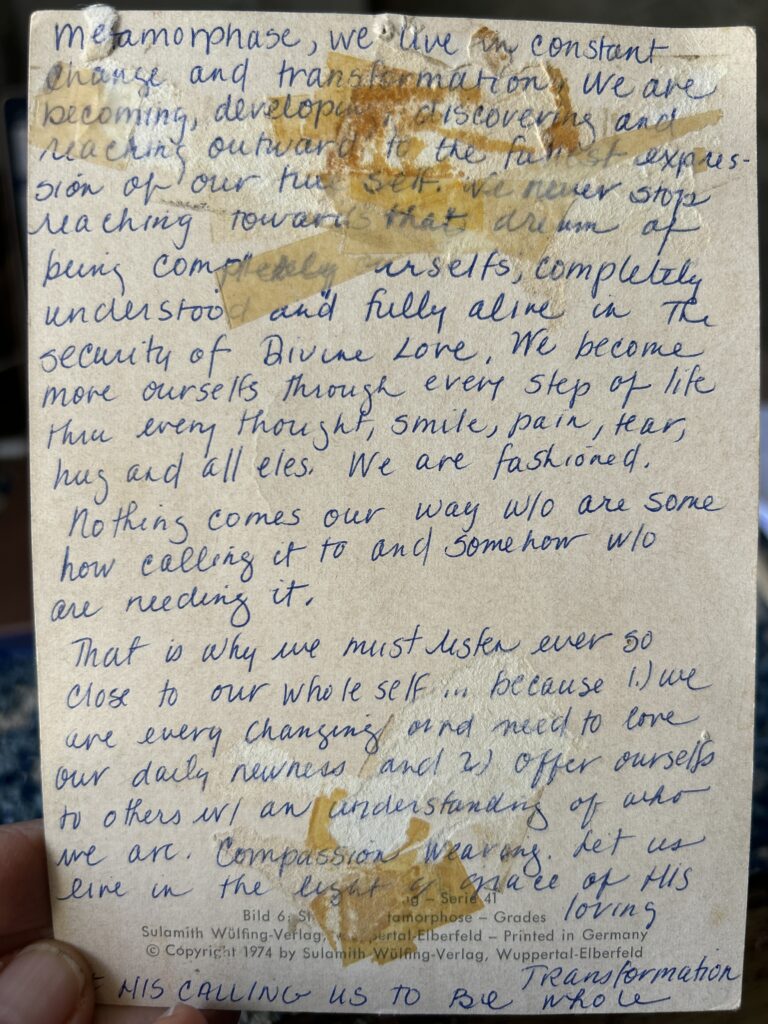 Metamorphase, we live in constant
change and transformation. We are
becoming, developing, discovering and
reaching outward to the fullest expres-
sion of our true self. We never stop
reaching towards that dream of
being completely ourselfs, completely
understood and fully alive in The
security of Divine Love. We become
more ourselfs through every step of life
thru every thought, smile, pain, tear,
hug and all eles. We are fashioned.
Nothing comes our way w/o are some
how calling it to and somehow w/o
are needing it.
That is why we must listen ever so
close to our whole self... because 1.) we
are every changing and need to love
our daily newness and 2.) offer ourselfs
to others w/ an understanding of who
we are. Compassion Wearing. Let us
live in the light of grace of His
loving
ng – Serie 41
Bild 6: tamorphose – Grades
Sulamith Wülfing-Verlag, pertal-Elberfeld – Printed in Germany
© Copyright 1974 by Sulamith Wülfing-Verlag, Wuppertal-Elberfeld
Transformation
HIS CALLING US TO BE whole